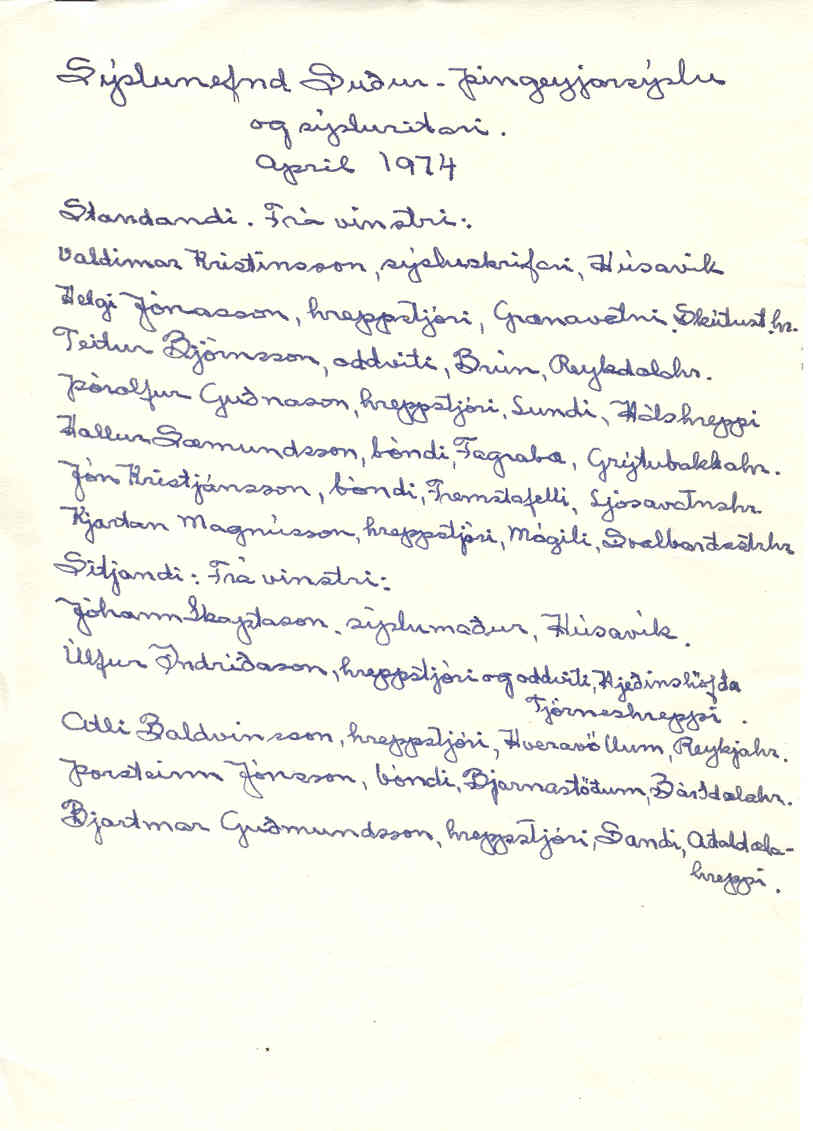 Sýslunefnd Suður-Þingeyjarsýslu
og sýsluritari.
Apríl 1974
Standandi. Frá vinstri:
Valdimar Kristinsson, sýsluskrifari, Húsavík
Helgi Jónasson, hreppstjóri, Grænavatni, Skútust.hr.
Teitur Björnsson, oddviti, Brún, Reykdælahr.
Þórólfur Guðnason, hreppstjóri, Lundi, Hálshreppi
Hallur Sæmundsson, bóndi, Fagrabæ, Grýtubakkahr.
Jón Kristjánsson, bóndi, Fremstafelli, Ljósavatnshr
Kjartan Magnússon, hreppstjóri, Mógili, Svalbarðsstrhr
Sitjandi: Frá vinstri:
Jóhann Skaptason, sýslumaður, Húsavík.
Úlfur Indriðason, hreppstjóri og oddviti, Hjeðinshöfða
Tjörneshreppi.
Atli Baldvinsson, hreppstjóri, Hveravöllum, Reykjahr.
Þorsteinn Jónsson, bóndi, Bjarnastöðum, Bárðdælahr.
Bjartmar Guðmundsson, hreppstjóri, Sandi, Aðaldæla-
hreppi.